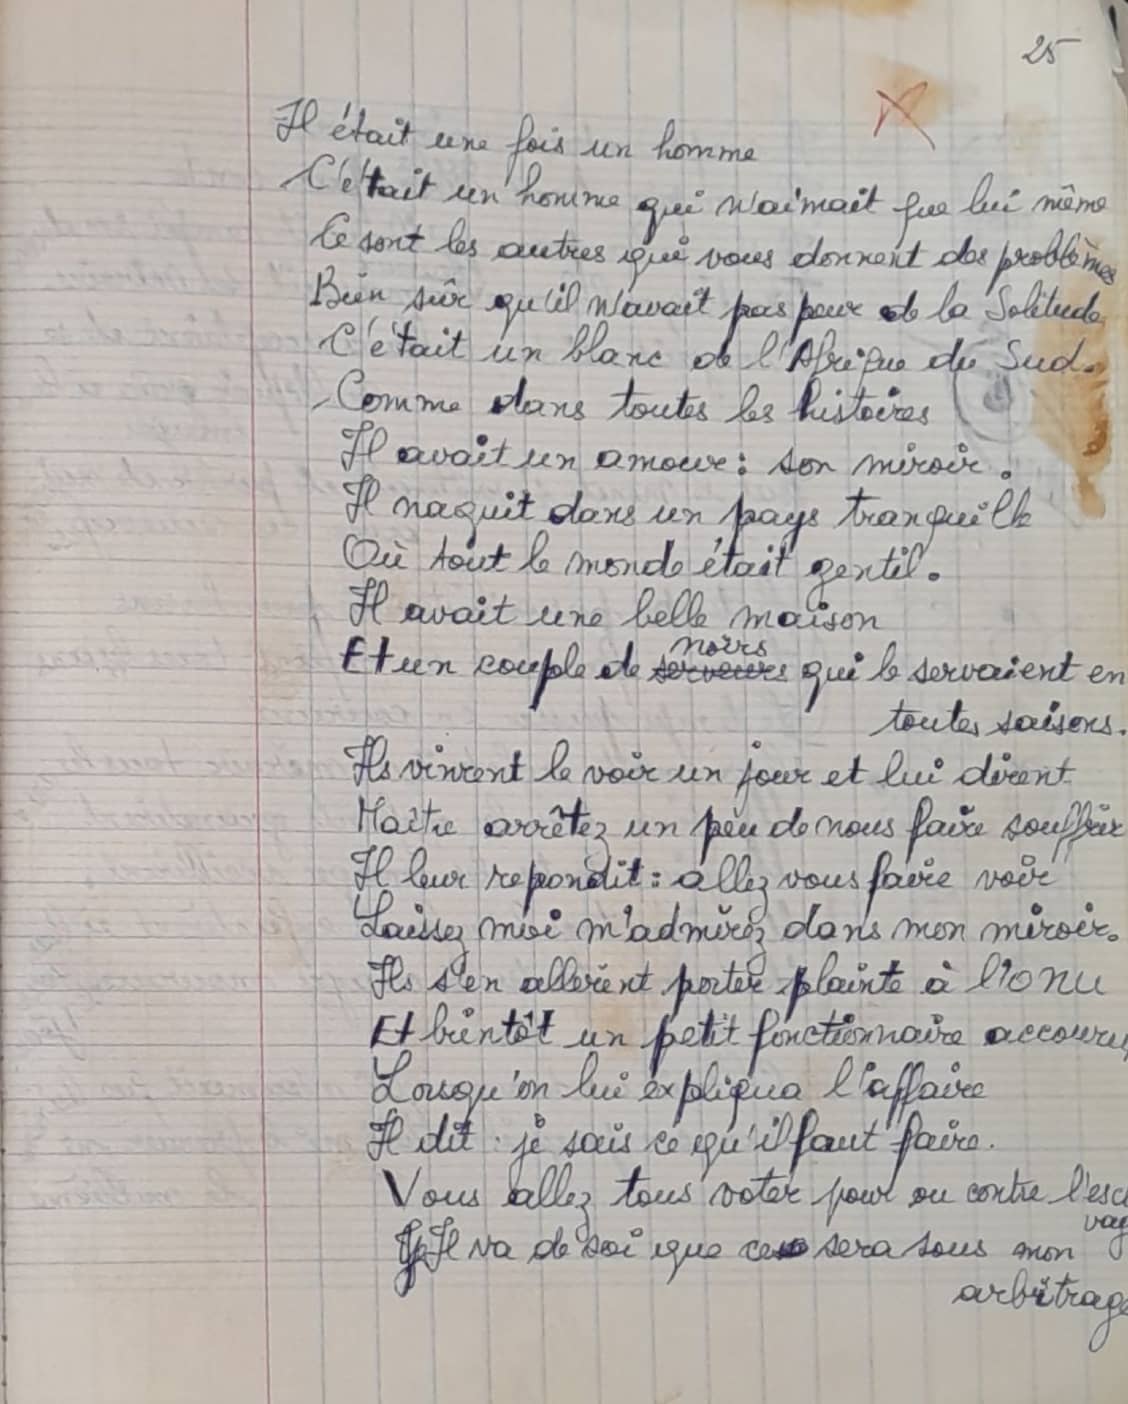 25
Il était une fois un homme
C'était un homme qui n'aimait que lui même
Ce sont les autres qui vous donnent des problèmes
Bien sûr qu'il n'avait pas peur de la Solitude
C'était un blanc de l'Afrique du Sud.
Comme dans toutes les histoires
Il avait un amour : son miroir.
Il naquit dans un pays tranquille
Où tout le monde était gentil.
Il avait une belle maison
noirs
Et un couple de serveurs qui le servaient en
toutes saisons.
Ils vinrent le voir un jour et lui dirent
Maître arrêtez un peu de nous faire souffrir
Il leur repondit : allez vous faire voir
Laissez moi m'admirez dans mon miroir.
Ils s'en allèrent porter plainte à l'ONU
Et bientôt un petit fonctionnaire accouru
Lorsqu'on lui expliqua l'affaire
Il dit : je sais ce qu'il faut faire.
Vous allez tous voter pour ou contre l'escl
vag
Il va de soi que ce sera sous mon
arbitrage